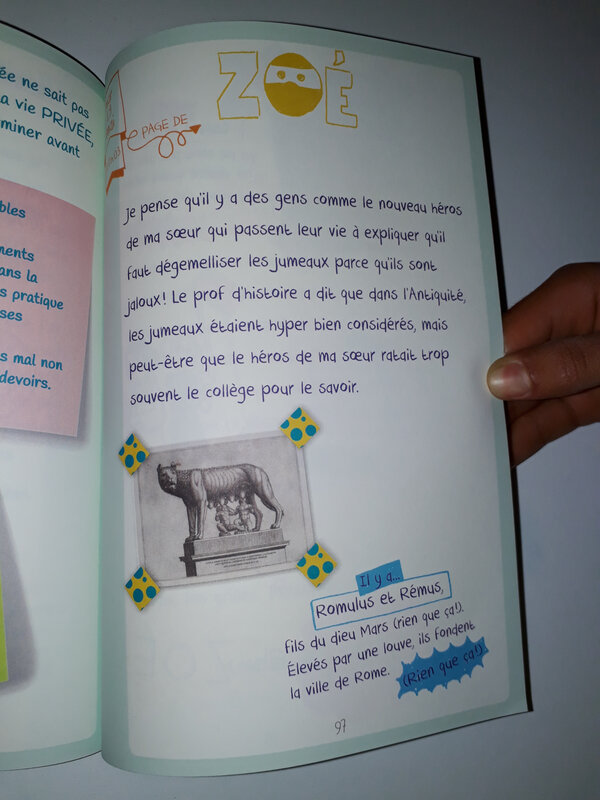 ée ne sait pas
a vie PRIVÉE,
miner avant
bles
ments
ans la
s pratique
ses
s mal non
devoirs.
PAGE DE
ZOÉ
Je pense qu'il y a des gens comme le nouveau héros
de ma sœur qui passent leur vie à expliquer qu'il
faut dégemelliser les jumeaux parce qu'ils sont
jaloux! Le prof d'histoire a dit que dans l'Antiquité,
les jumeaux étaient hyper bien considérés, mais
peut-être que le héros de ma sœur ratait trop
souvent le collège pour le savoir.
Il y a...
Romulus et Rémus,
fils du dieu Mars (rien que ça!).
Élevés par une louve, ils fondent
la ville de Rome.
(Rien que ça!)
97